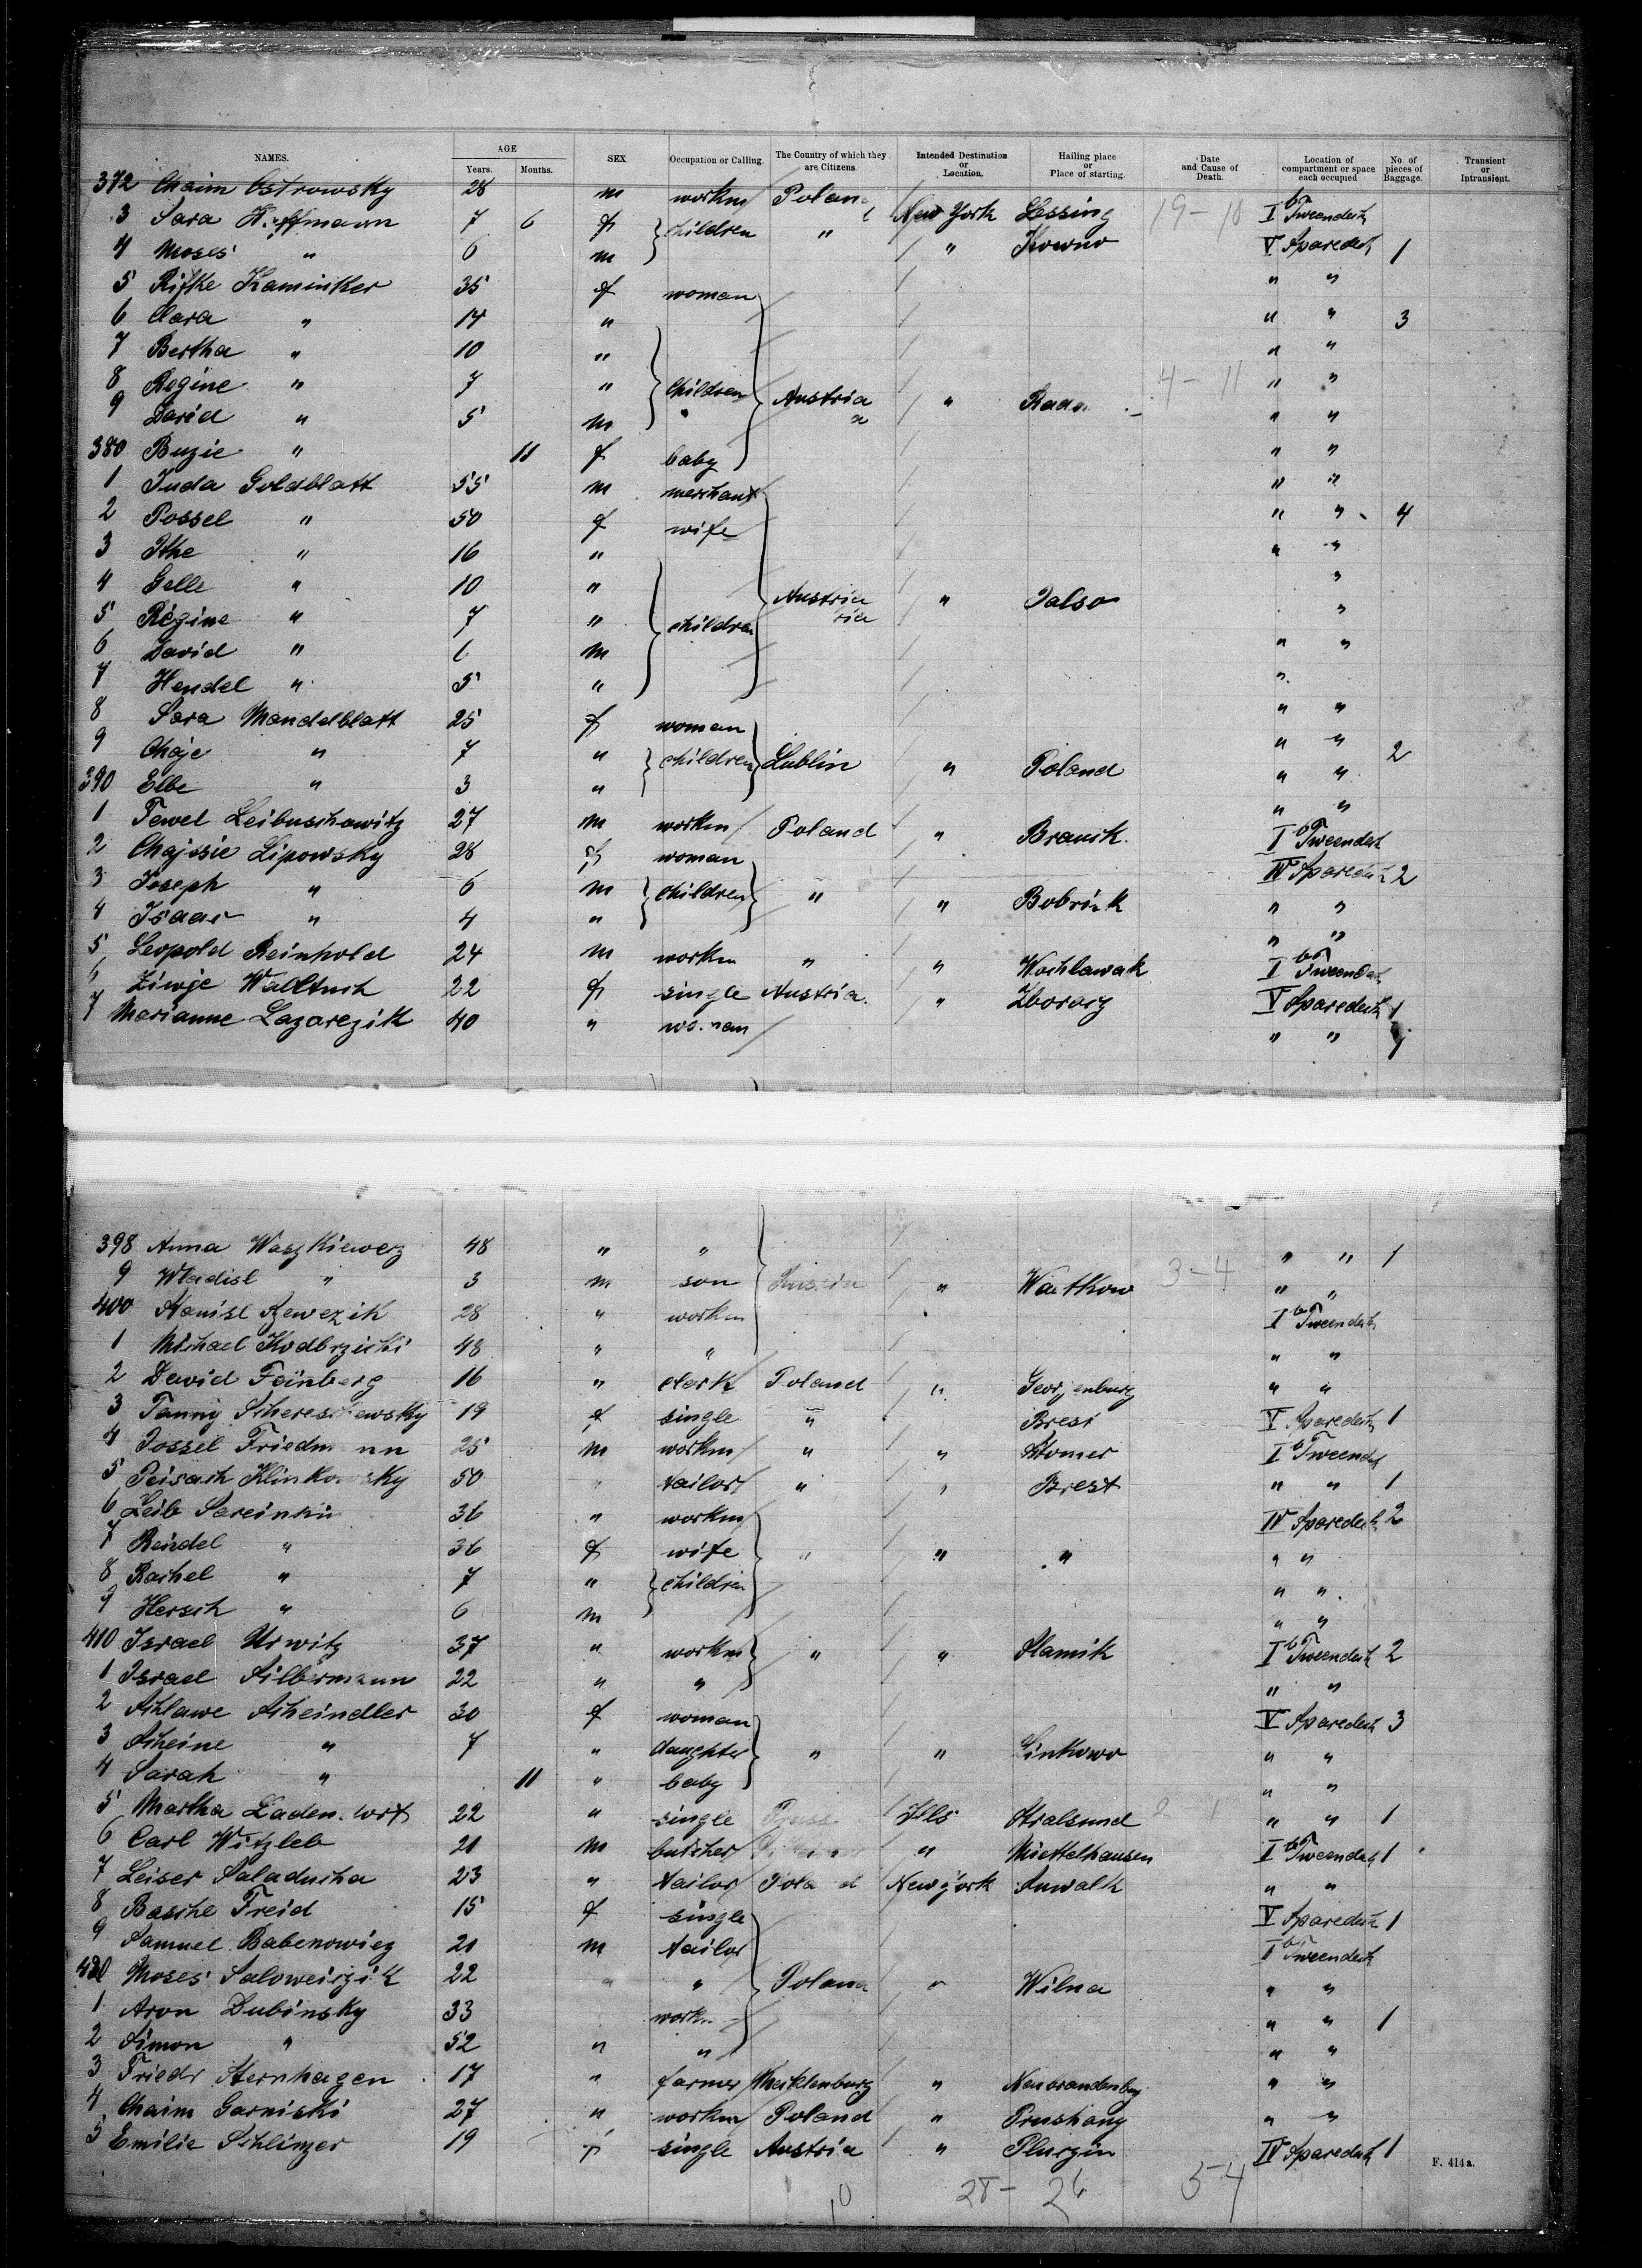 NAMES. AGE Years. Months. SEX Occupation or Calling. The Country of which they are Citizens Intended Destination or Location. Hailing place or Place of starting. Date and Cause of Death. Location of compartment or space each occupied No. of pieces of Baggage. Transient or Intransient.
372 Chaim Ostrowsky 28 m workm Poland I Tweendeck
3 Sara H ffmann 7 6 f children " New York Lessing 19 - 10 V Sparedeck 1
4 Moses " 6 m " Kowno " "
5 Rifke Kaminker 35 f woman " " 3
6 Clara " 17 " " "
7 Bertha " 10 " " "
8 Regine " 7 " children Austria " 4 - 11 " "
9 David " 5 m " " "
380 Buzie " 11 f baby " "
1 Juda Goldblatt 55 m merchant " " 4
2 Possel " 50 f wife " "
3 Itke " 16 " "
4 Gelle " 10 " Austria " Jalso "
5 Regine " 7 " children " "
6 David " 6 m "
7 Hendel " 5 " " "
8 Sara Mandelblatt 25 f woman " " 2
9 Chaje " 7 " children Lublin " Poland " "
390 Elbe " 3 " " "
1 Tewel Leibuschowitz 27 m workm Poland " Bransk. I Tweendeck
2 Chajssie Lipowsky 28 f woman IV Sparedeck 2
3 Joseph " 6 m children " " Bobrisk " "
4 Isaac " 4 " " "
5 Leopold Reinhold 24 m workm " " Wochlawak I Tweendeck
6 Ziwje Walltuch 22 f single Austria. " Zborary V Sparedeck 1
7 Marianne Lazarezik 40 " wo.nan " " 1
398 Anna Waszkiewerz 48 " " " " 1
9 Wladisl " 3 m son Russia " Waitkow 3 - 4 " "
400 Stanisl Rewezik 28 " workm I Tweendeck
1 Michael Kodbrzicki 48 " " " "
2 David Feinberg 16 " clerk Poland " Georgenburg " "
3 Fanny Scheres ewsky 19 f single " Bresi V Sparedeck 1
4 Jossel Friedm nn 25 m workm " " I Tweendeck
5 Peisach Klinko sky 50 tailor " " Brest " " 1
6 Leib 36 " workm IV Sparedeck 2
7 Reindel " 36 f wife " " " " "
8 Rachel " 7 " children " "
9 Hersch " 6 m " "
410 Israel Urwitz 37 " workm " " Slamik I Tweendeck 2
1 Israel Silbermann 22 " " " "
2 Schlawe Scheindler 30 f woman V Sparedeck 3
3 Scheine " 7 " daughter " " Linkowo " "
4 Sarah " 11 " baby " "
5 Martha Laden. 22 " single Pruss Ills Stralsund 2 1 " " 1
6 Carl Witzleb 21 m butcher " Miettelhausen I Tweendeck 1
7 Leiser Saladucha 23 " tailor Pola d New york Suwalk " "
8 Basche Freid 15 f single V Sparedeck 1
9 Samuel Babenowiez 21 m tailor I Tweendeck
420 Moses Saloweiczik 22 " " Poland " Wilna " "
1 Aron Dubinsky 33 workm " " 1
2 Simon " 52 " " " "
3 Friedr Sternhagen 17 " farmer Mecklenburg " Neubrandenbug " "
4 Chaim Garniski 27 " workm Poland " Prushany " "
5 Emilie Schlinger 19 f single Austria " Plurzin IV Sparedeck 1
F. 414a.
10 28 - 26 5-4